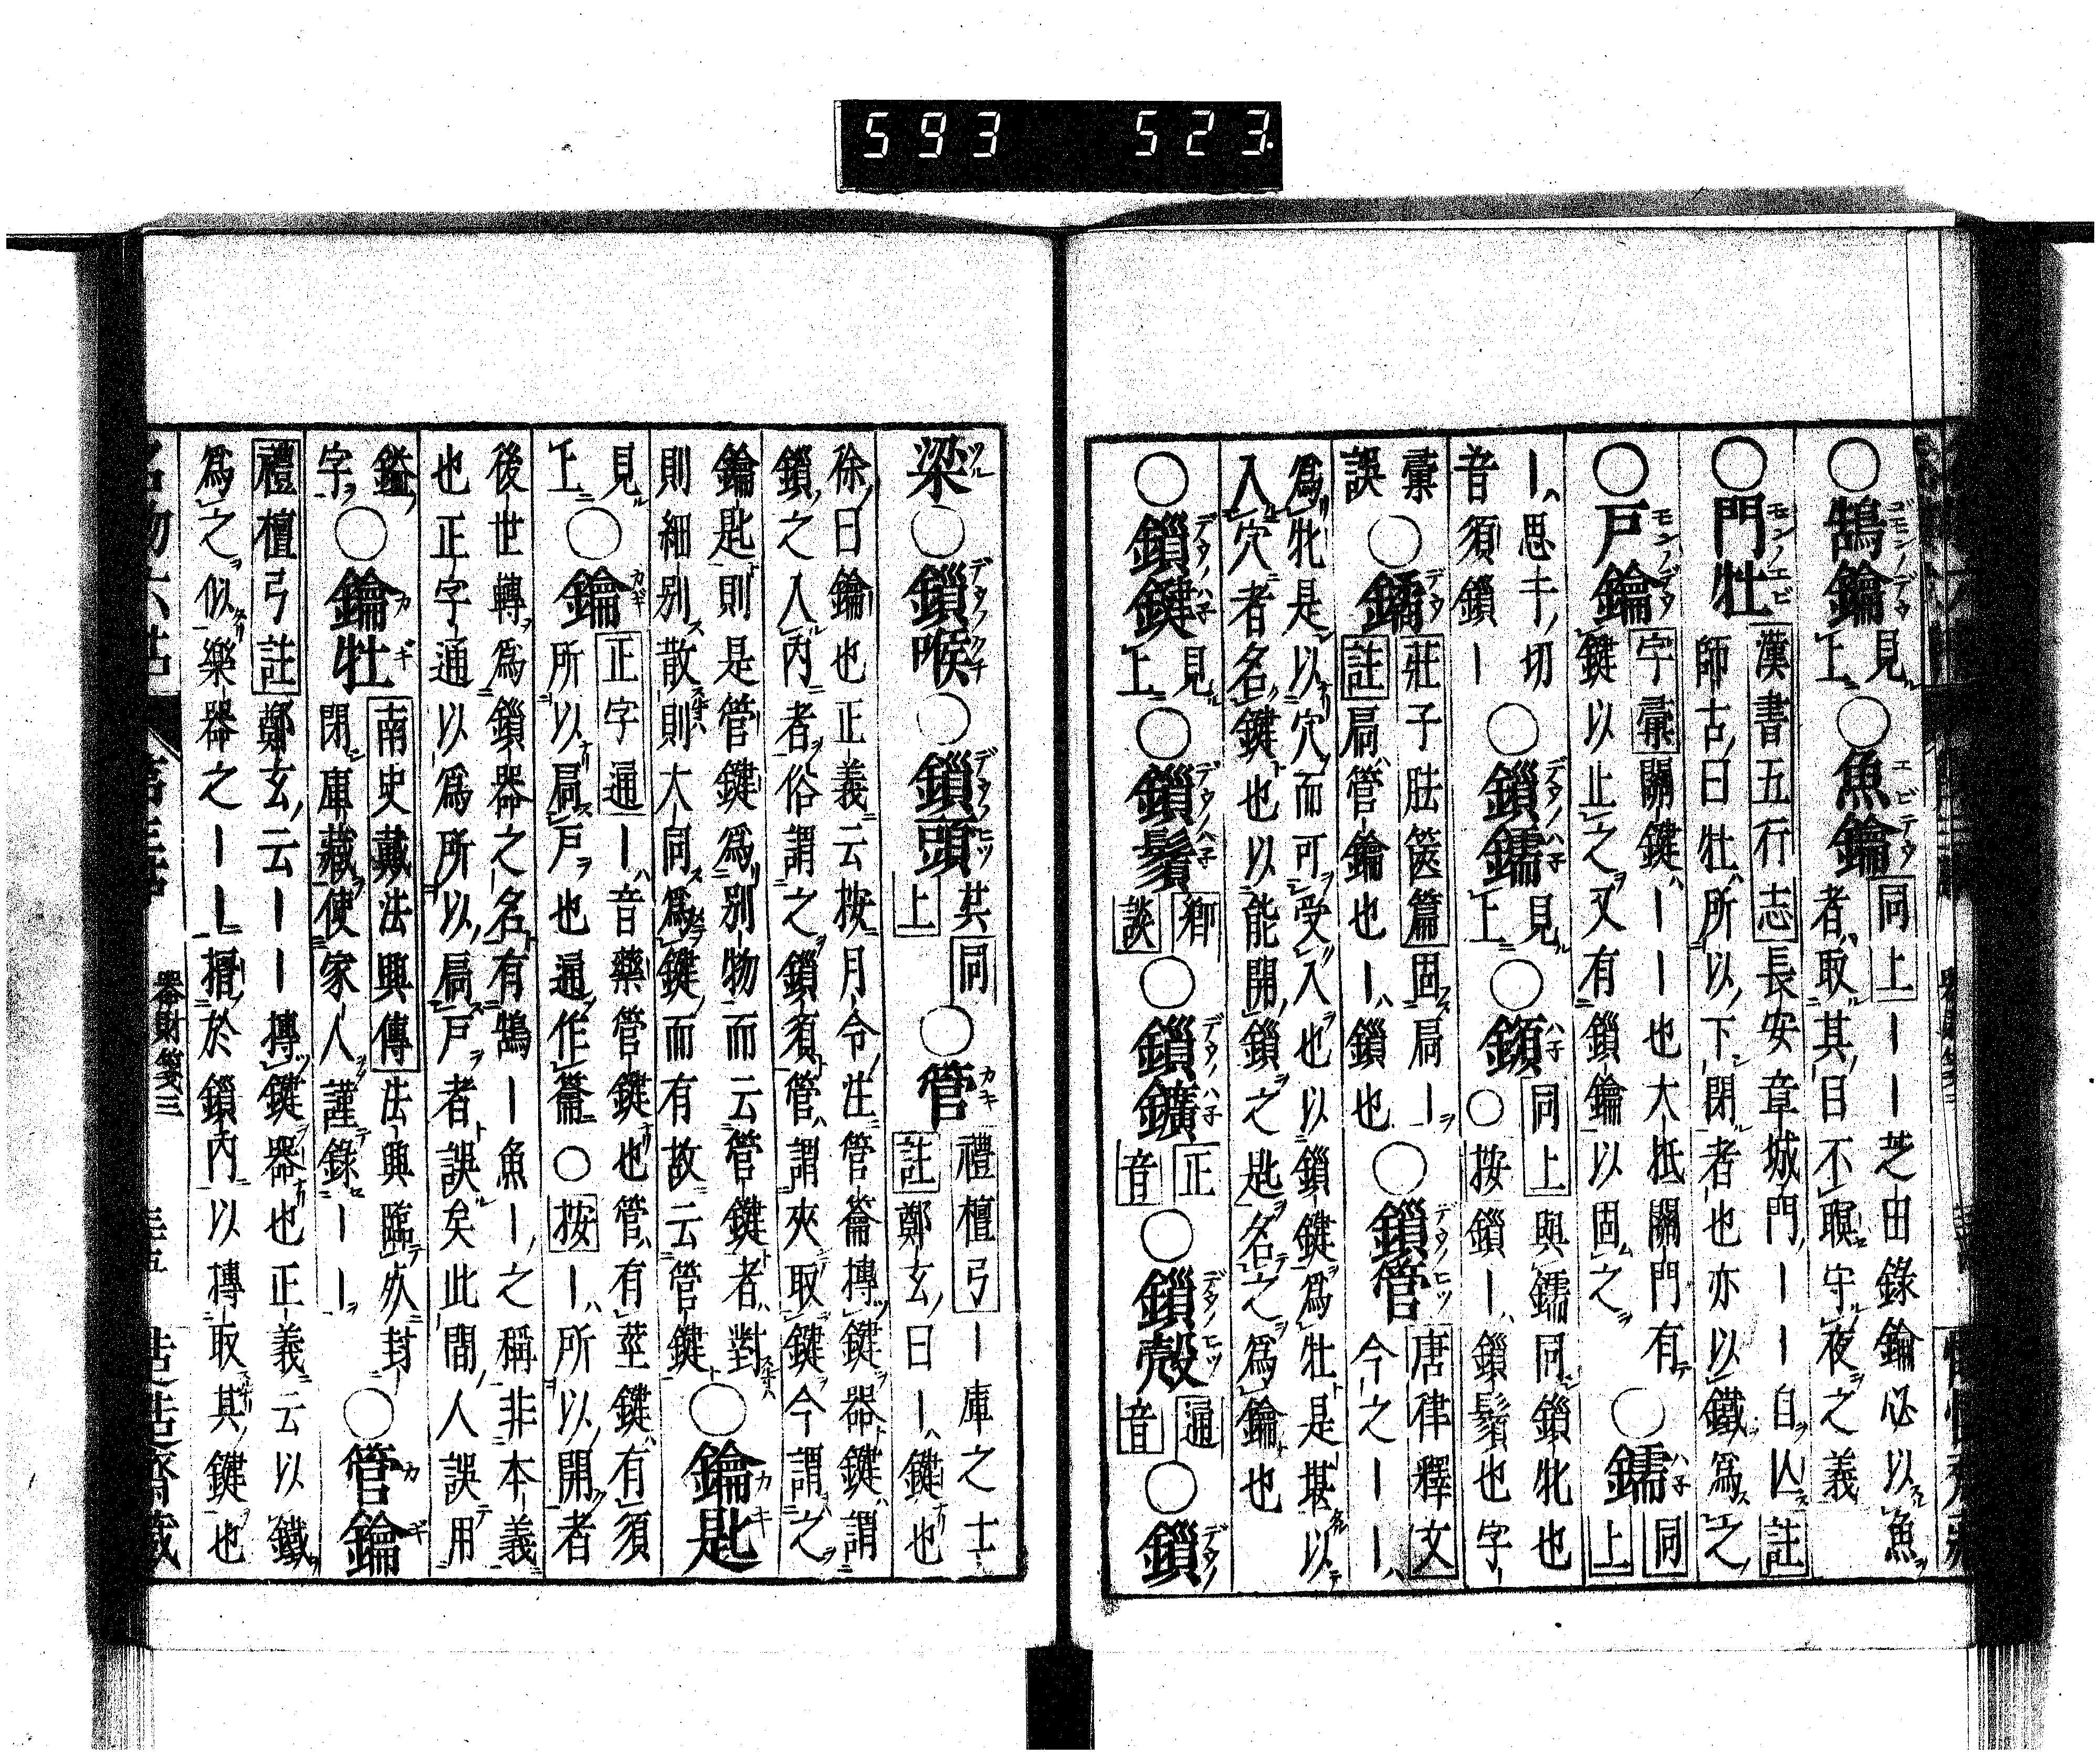 ○鵠鑰 見上 ○魚鑰 同上｜｜芝田錄鑰必以魚
者取其目不瞑守夜之義
○門牡 漢書五行志長安章城門｜｜自亡註
師古曰牡所以下閉者也亦以鐵爲之
○戸鑰 字彙關鍵｜｜｜也大抵關門有
鍵以止之又有鎖鑰以固之 ○鑐 同上
｜思于切
音須鎖｜ ○鎖鑐 見上 ○ 同上與鑐同鎖牝也
○按鎖｜鎖鬚也字
彙誤 ○鐍 莊子胠篋篇固扃｜
註扃管鑰也｜鎖也 ○鎖管 唐律釋文
今之｜｜
爲牝是以穴而可受入也以鎖鍵爲牡是堪以
入穴者名鍵也以能開鎖之匙名之爲鑰也
○鎖鍵 見上 ○鎖鬚 鄉談 ○鎖鑛 正音 ○鎖殼 通音 ○鎖
梁 ○鎖喉 ○鎖頭 共同上 ○管 禮檀弓｜庫之士
註鄭玄曰｜鍵也
徐曰鑰也正義云按月令注管籥搏鍵器鍵謂
鎖之入內者俗謂之鎖須管謂夾取鍵今謂之
鑰匙則是管鍵爲別物而云管鍵者對
則細別散則大同爲鍵而有故云管鍵 ○鑰匙
見上 ○鑰 正字通｜音藥管鍵也管有莖鍵有須
所以扃戸也通作籥○按｜所以開者
後世轉爲鎖器之名有鵠｜魚｜之稱非本義
也正字通以爲所以扃戸者誤矣此間人誤用
鎰字 ○鑰牡 南史戴法興傳法興臨死封
閉庫藏使家人謹錄｜｜ ○管鑰
禮檀弓註鄭玄云｜｜搏鍵器也正義云以鐵
爲之似樂器之｜｜搢於鎖內以搏取其鍵也
器財箋三
593 523